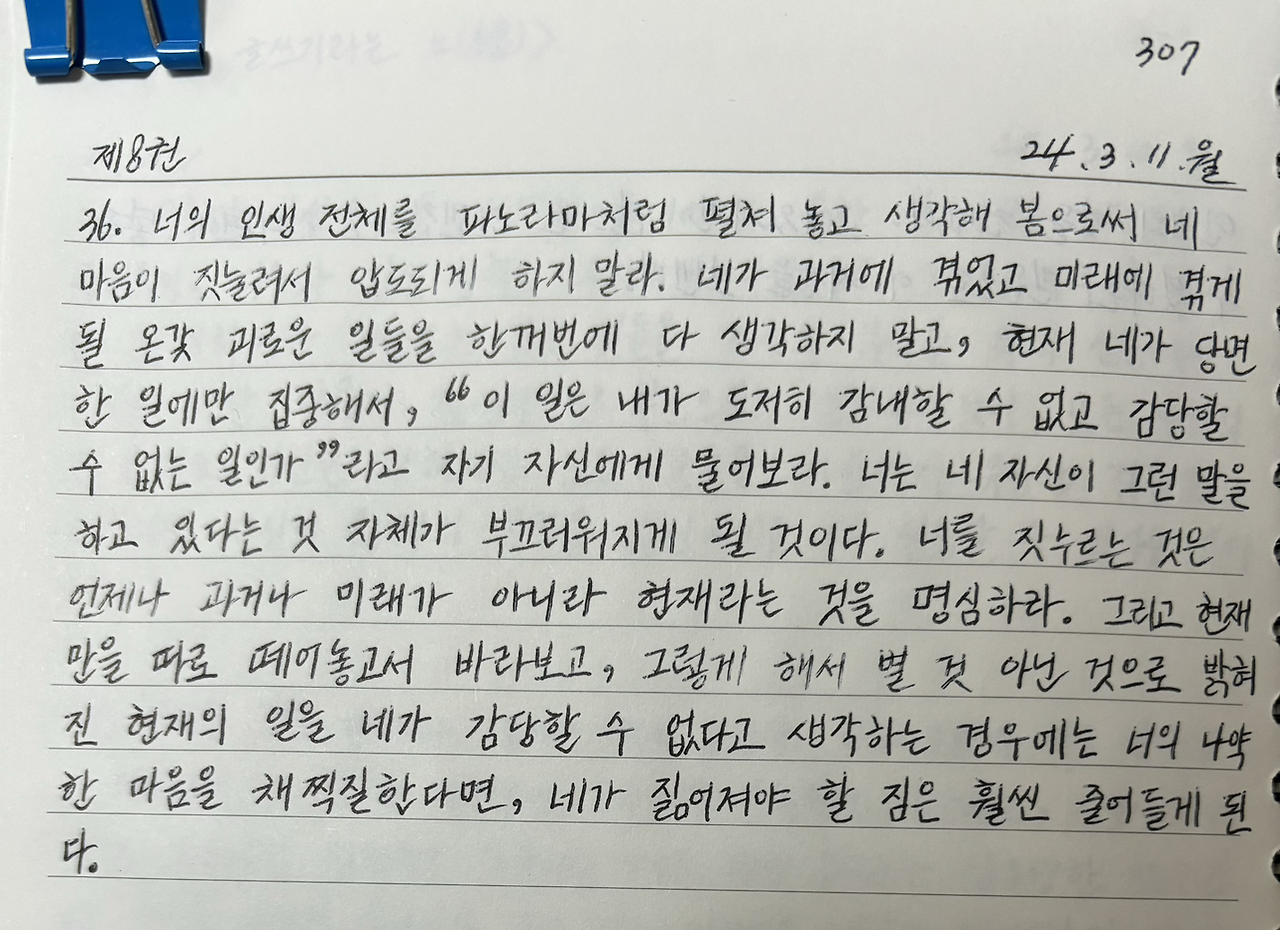 307
제8권 24.3.11.월
36. 너의 인생 전체를 파노라마처럼 펼쳐 놓고 생각해 봄으로써 네
마음이 짓눌려서 압도되게 하지 말라. 네가 과거에 겪었고 미래에 겪게
될 온갖 괴로운 일들을 한꺼번에 다 생각하지 말고, 현재 네가 당면
한 일에만 집중해서, "이 일은 내가 도저히 감내할 수 없고 감당할
수 없는 일인가"라고 자기 자신에게 물어보라. 너는 네 자신이 그런 말을
하고 있다는 것 자체가 부끄러워지게 될 것이다. 너를 짓누르는 것은
언제나 과거나 미래가 아니라 현재라는 것을 명심하라. 그리고 현재
만을 따로 떼어놓고서 바라보고, 그렇게 해서 별 것 아닌 것으로 밝혀
진 현재의 일을 네가 감당할 수 없다고 생각하는 경우에는 너의 나약
한 마음을 채찍질한다면, 네가 짊어져야 할 짐은 훨씬 줄어들게 된
다.